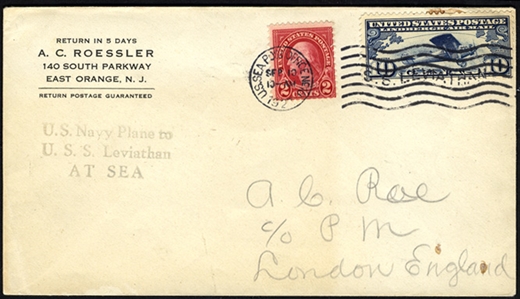 RETURN IN 5 DAYS
A. C. ROESSLER
140 SOUTH PARKWAY
EAST ORANGE, N. J.
RETURN POSTAGE GUARANTEED
U.S. Navy Plane to
U. S. S. Leviathan
AT SEA
UNITED STATES POSTAGE
LINDBERGH AIR MAIL
2 CENTS 2
U.S. SEA POST
LEVIATHAN
A. C. Roe
c/o P M
London England